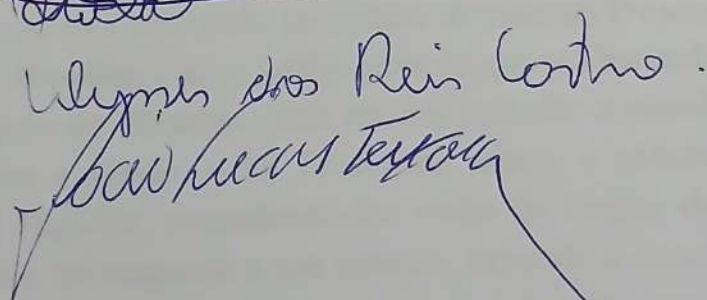 Ulysses dos Reis Castro.
João Lucas Teixeira